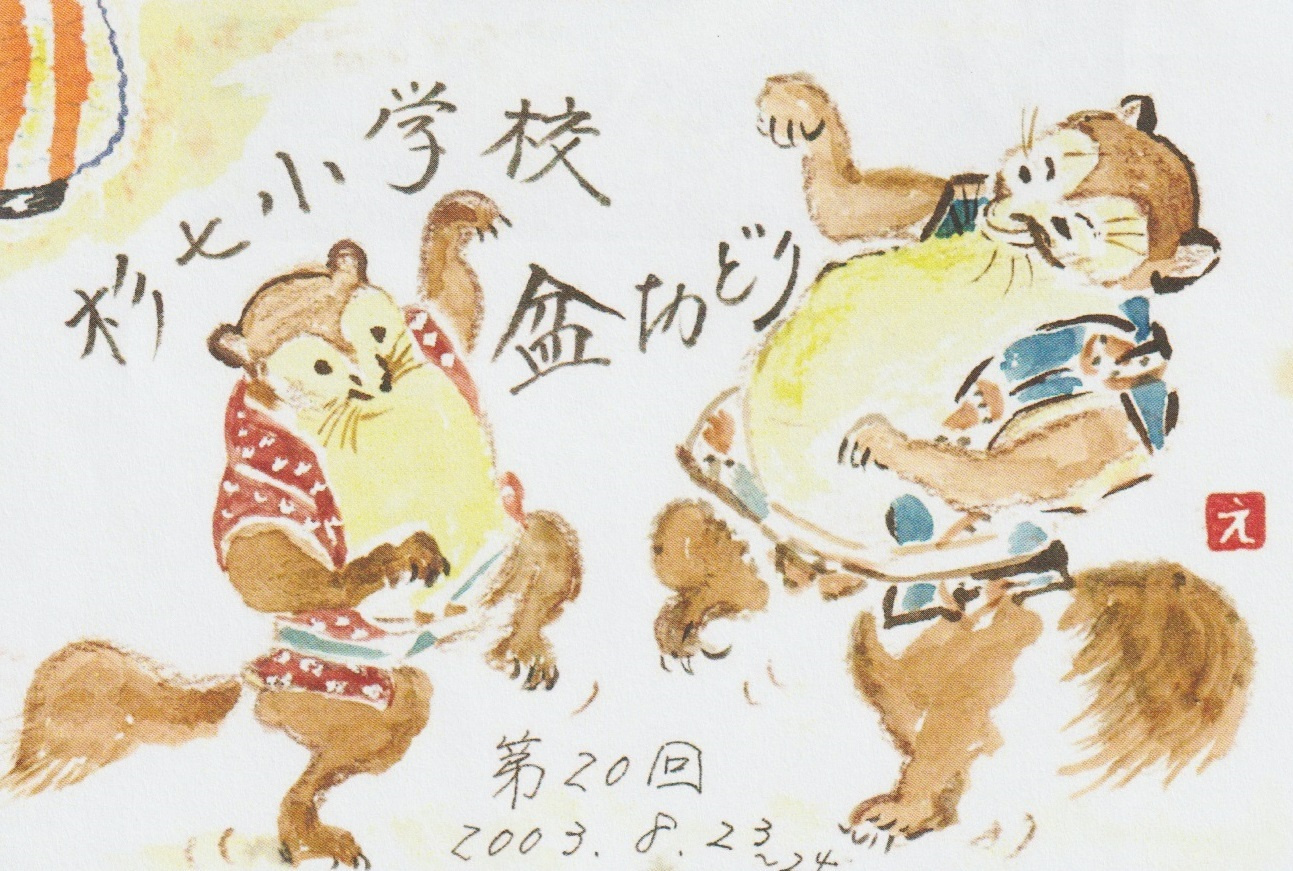 杉七小学校
盆おどり
え
第20回
2003.8.23~24